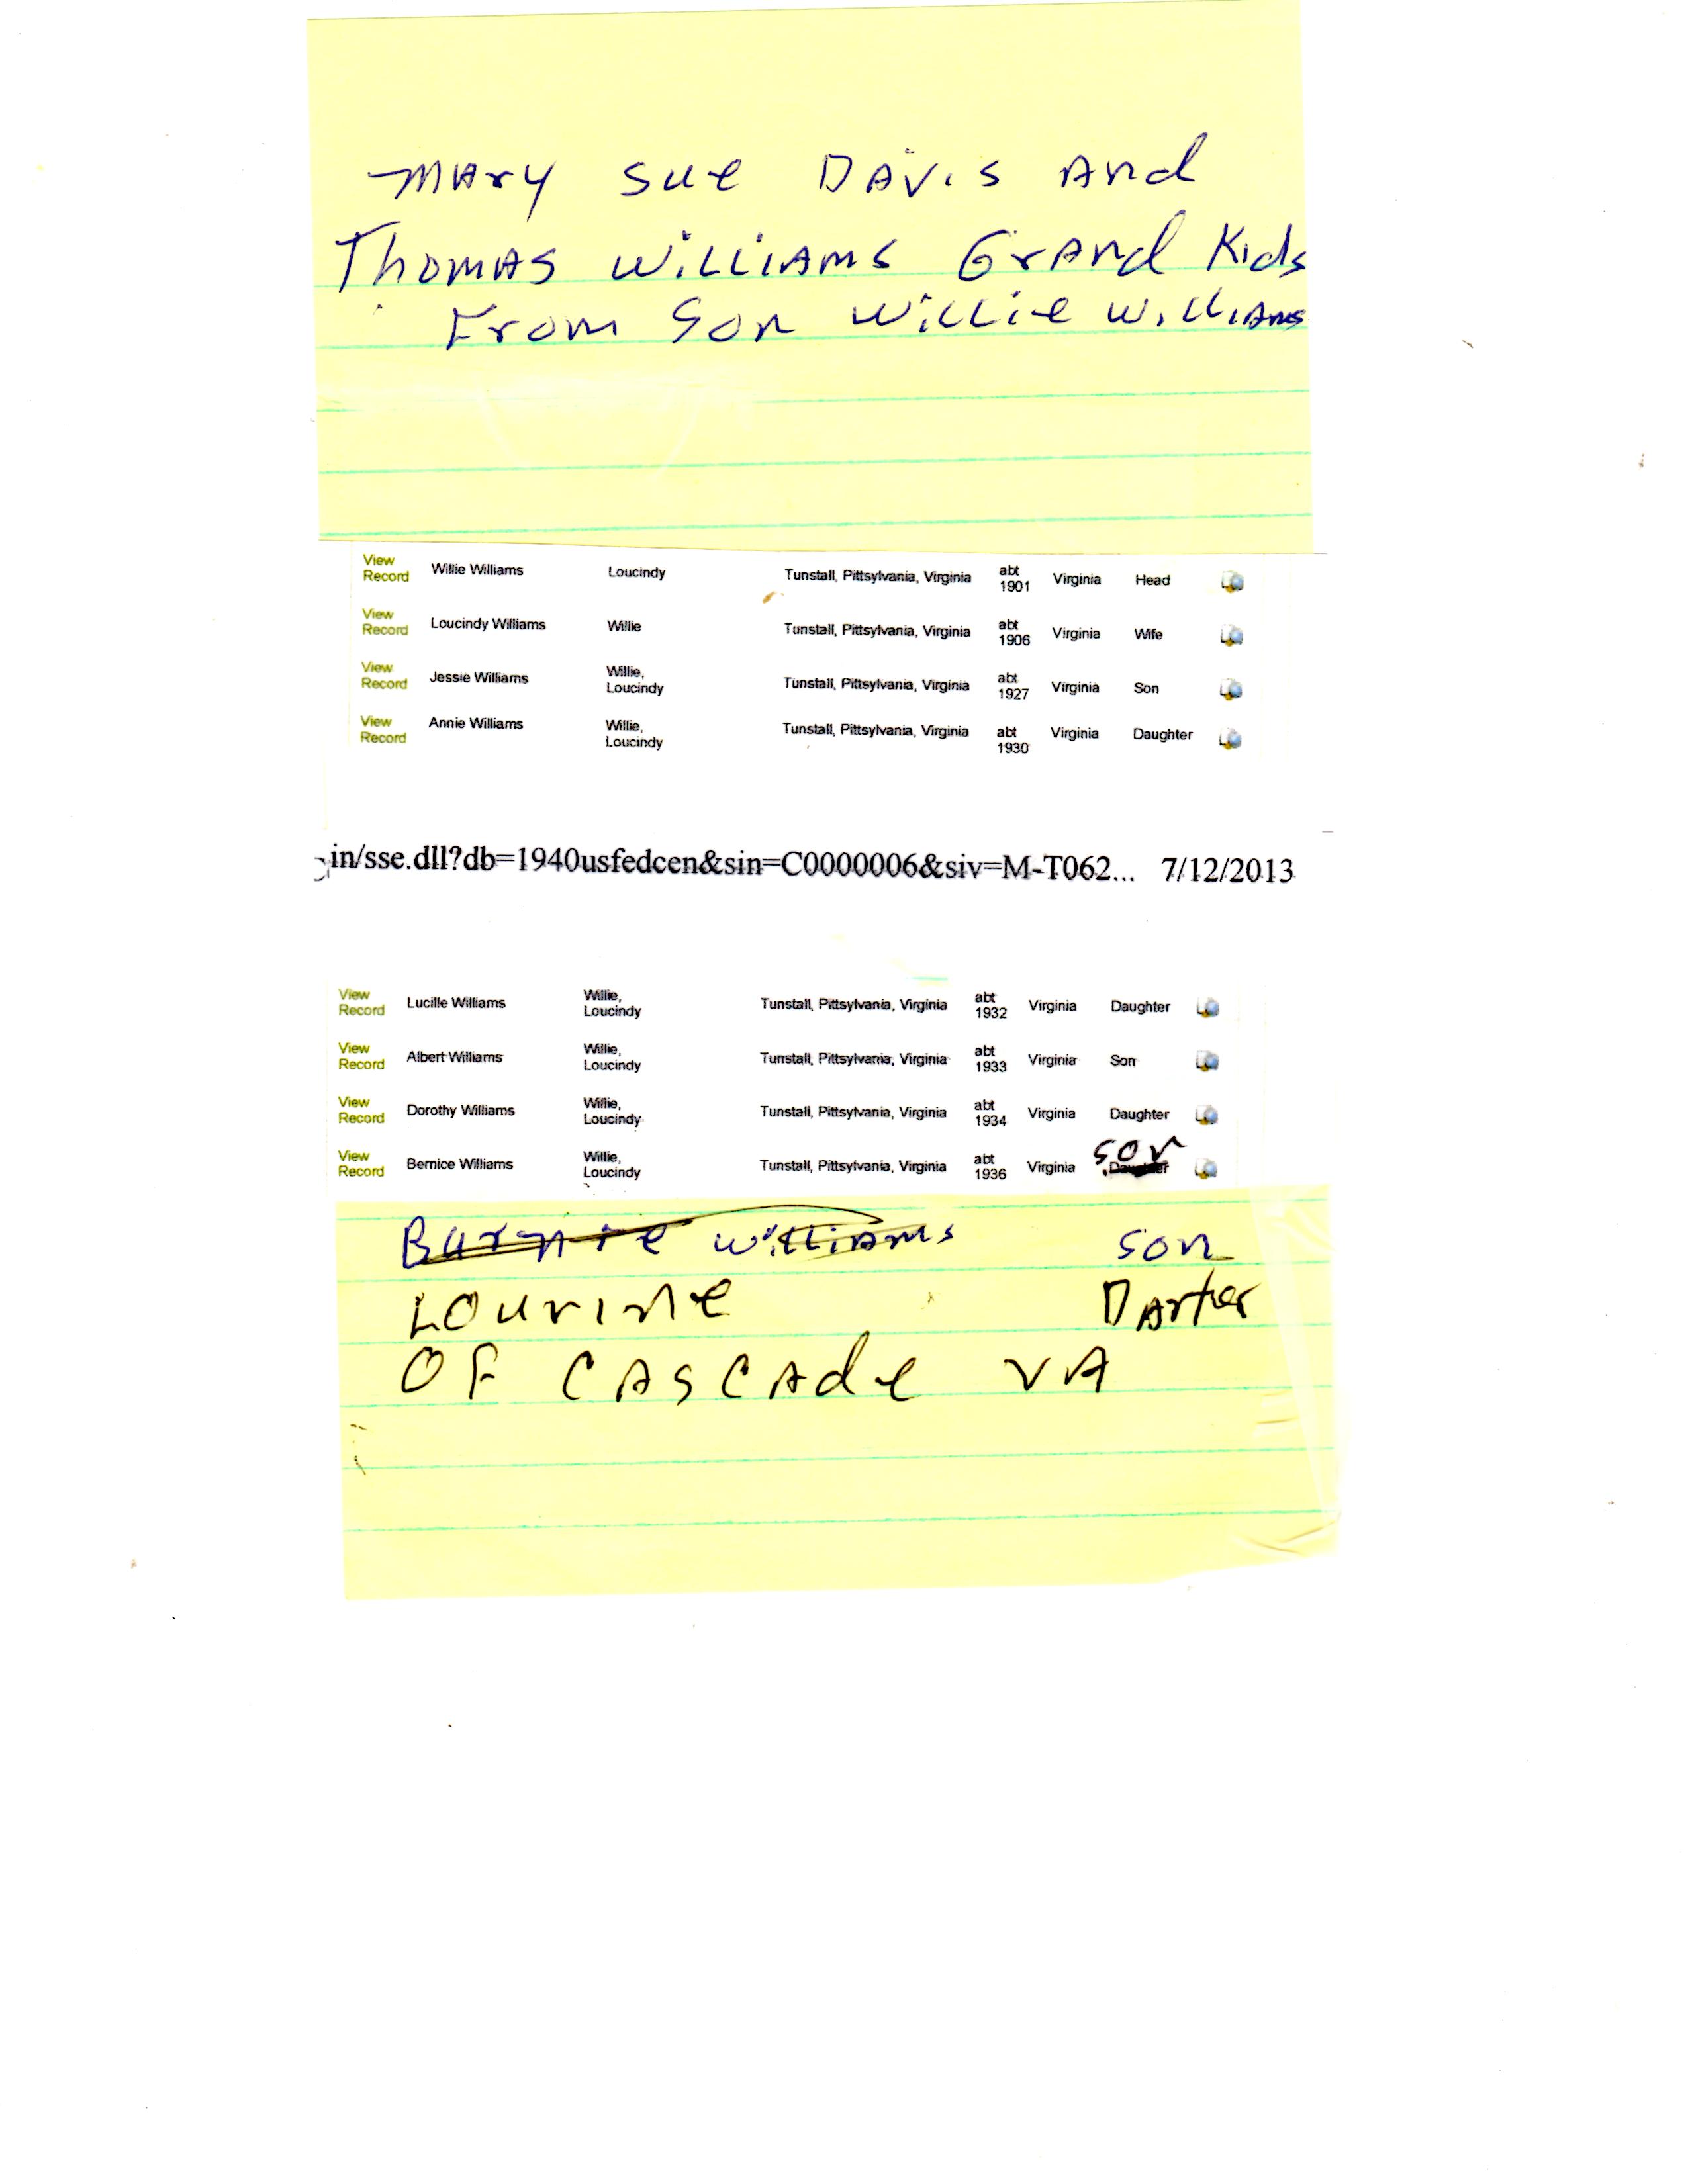 MARY SUE DAVIS AND
THOMAS WILLIAMS GRAND Kids
FROM SON WILLIE WILLIAMS
View Record Willie Williams Loucindy Tunstall, Pittsylvania, Virginia abt 1901 Virginia Head
View Record Loucindy Williams Willie Tunstall, Pittsylvania, Virginia abt 1906 Virginia Wife
View Record Jessie Williams Willie, Loucindy Tunstall, Pittsylvania, Virginia abt 1927 Virginia Son
View Record Annie Williams Willie, Loucindy Tunstall, Pittsylvania, Virginia abt 1930 Virginia Daughter
in/sse.dll?db=1940usfedcen&sin=C0000006&siv=M-T062... 7/12/2013
View Record Lucille Williams Willie, Loucindy Tunstall, Pittsylvania, Virginia abt 1932 Virginia Daughter
View Record Albert Williams Willie, Loucindy Tunstall, Pittsylvania, Virginia abt 1933 Virginia Son
View Record Dorothy Williams Willie, Loucindy Tunstall, Pittsylvania, Virginia abt 1934 Virginia Daughter
SON
View Record Bernice Williams Willie, Loucindy Tunstall, Pittsylvania, Virginia abt 1936 Virginia Daughter
Burnie Williams SON
LOURINE DArter
OF CASCADE VA